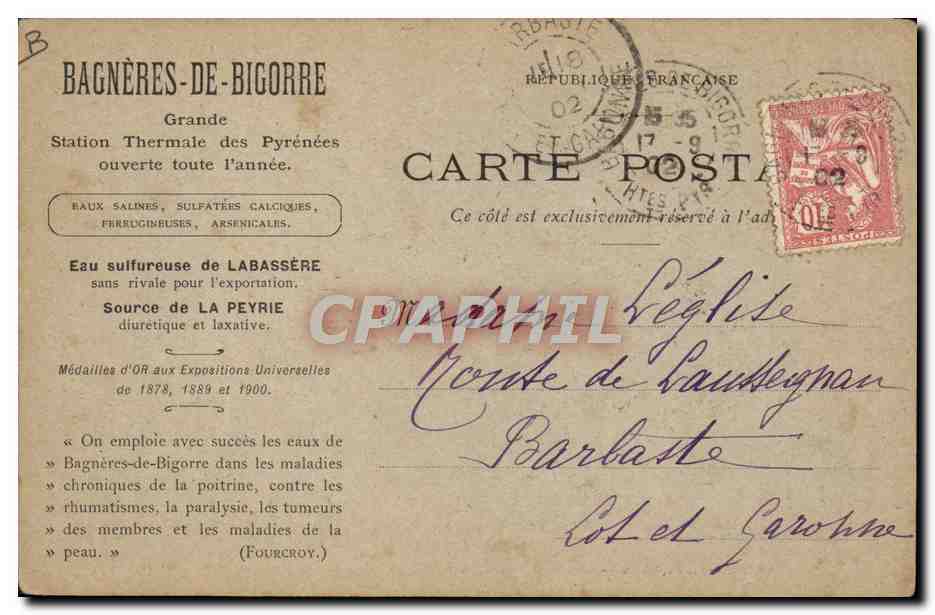 B
BAGNÈRES-DE-BIGORRE
Grande
Station Thermale des Pyrénées
ouverte toute l'année.
EAUX SALINES, SULFATÉES CALCIQUES,
FERRUGINEUSES, ARSENICALES.
Eau sulfureuse de LABASSÈRE
sans rivale pour l'exportation.
Source de LA PEYRIE
diurétique et laxative.
Médailles d'OR aux Expositions Universelles
de 1878, 1889 et 1900.
« On emploie avec succès les eaux de
» Bagnères-de-Bigorre dans les maladies
» chroniques de la poitrine, contre les
» rhumatismes, la paralysie, les tumeurs
» des membres et les maladies de la
» peau. » (FOURCROY.)
RÉPUBLIQUE FRANÇAISE
CARTE POSTA
Ce côté est exclusivement réservé à l'ad
BARBASTE
18
02
LOT-ET-GARONNE
BIGORRE
15 35
17 -9
02
HTES PYR
02
10
POSTES
CPAPHIL
Madame Léglise
Route de Lausseignan
Barbaste
Lot et Garonne